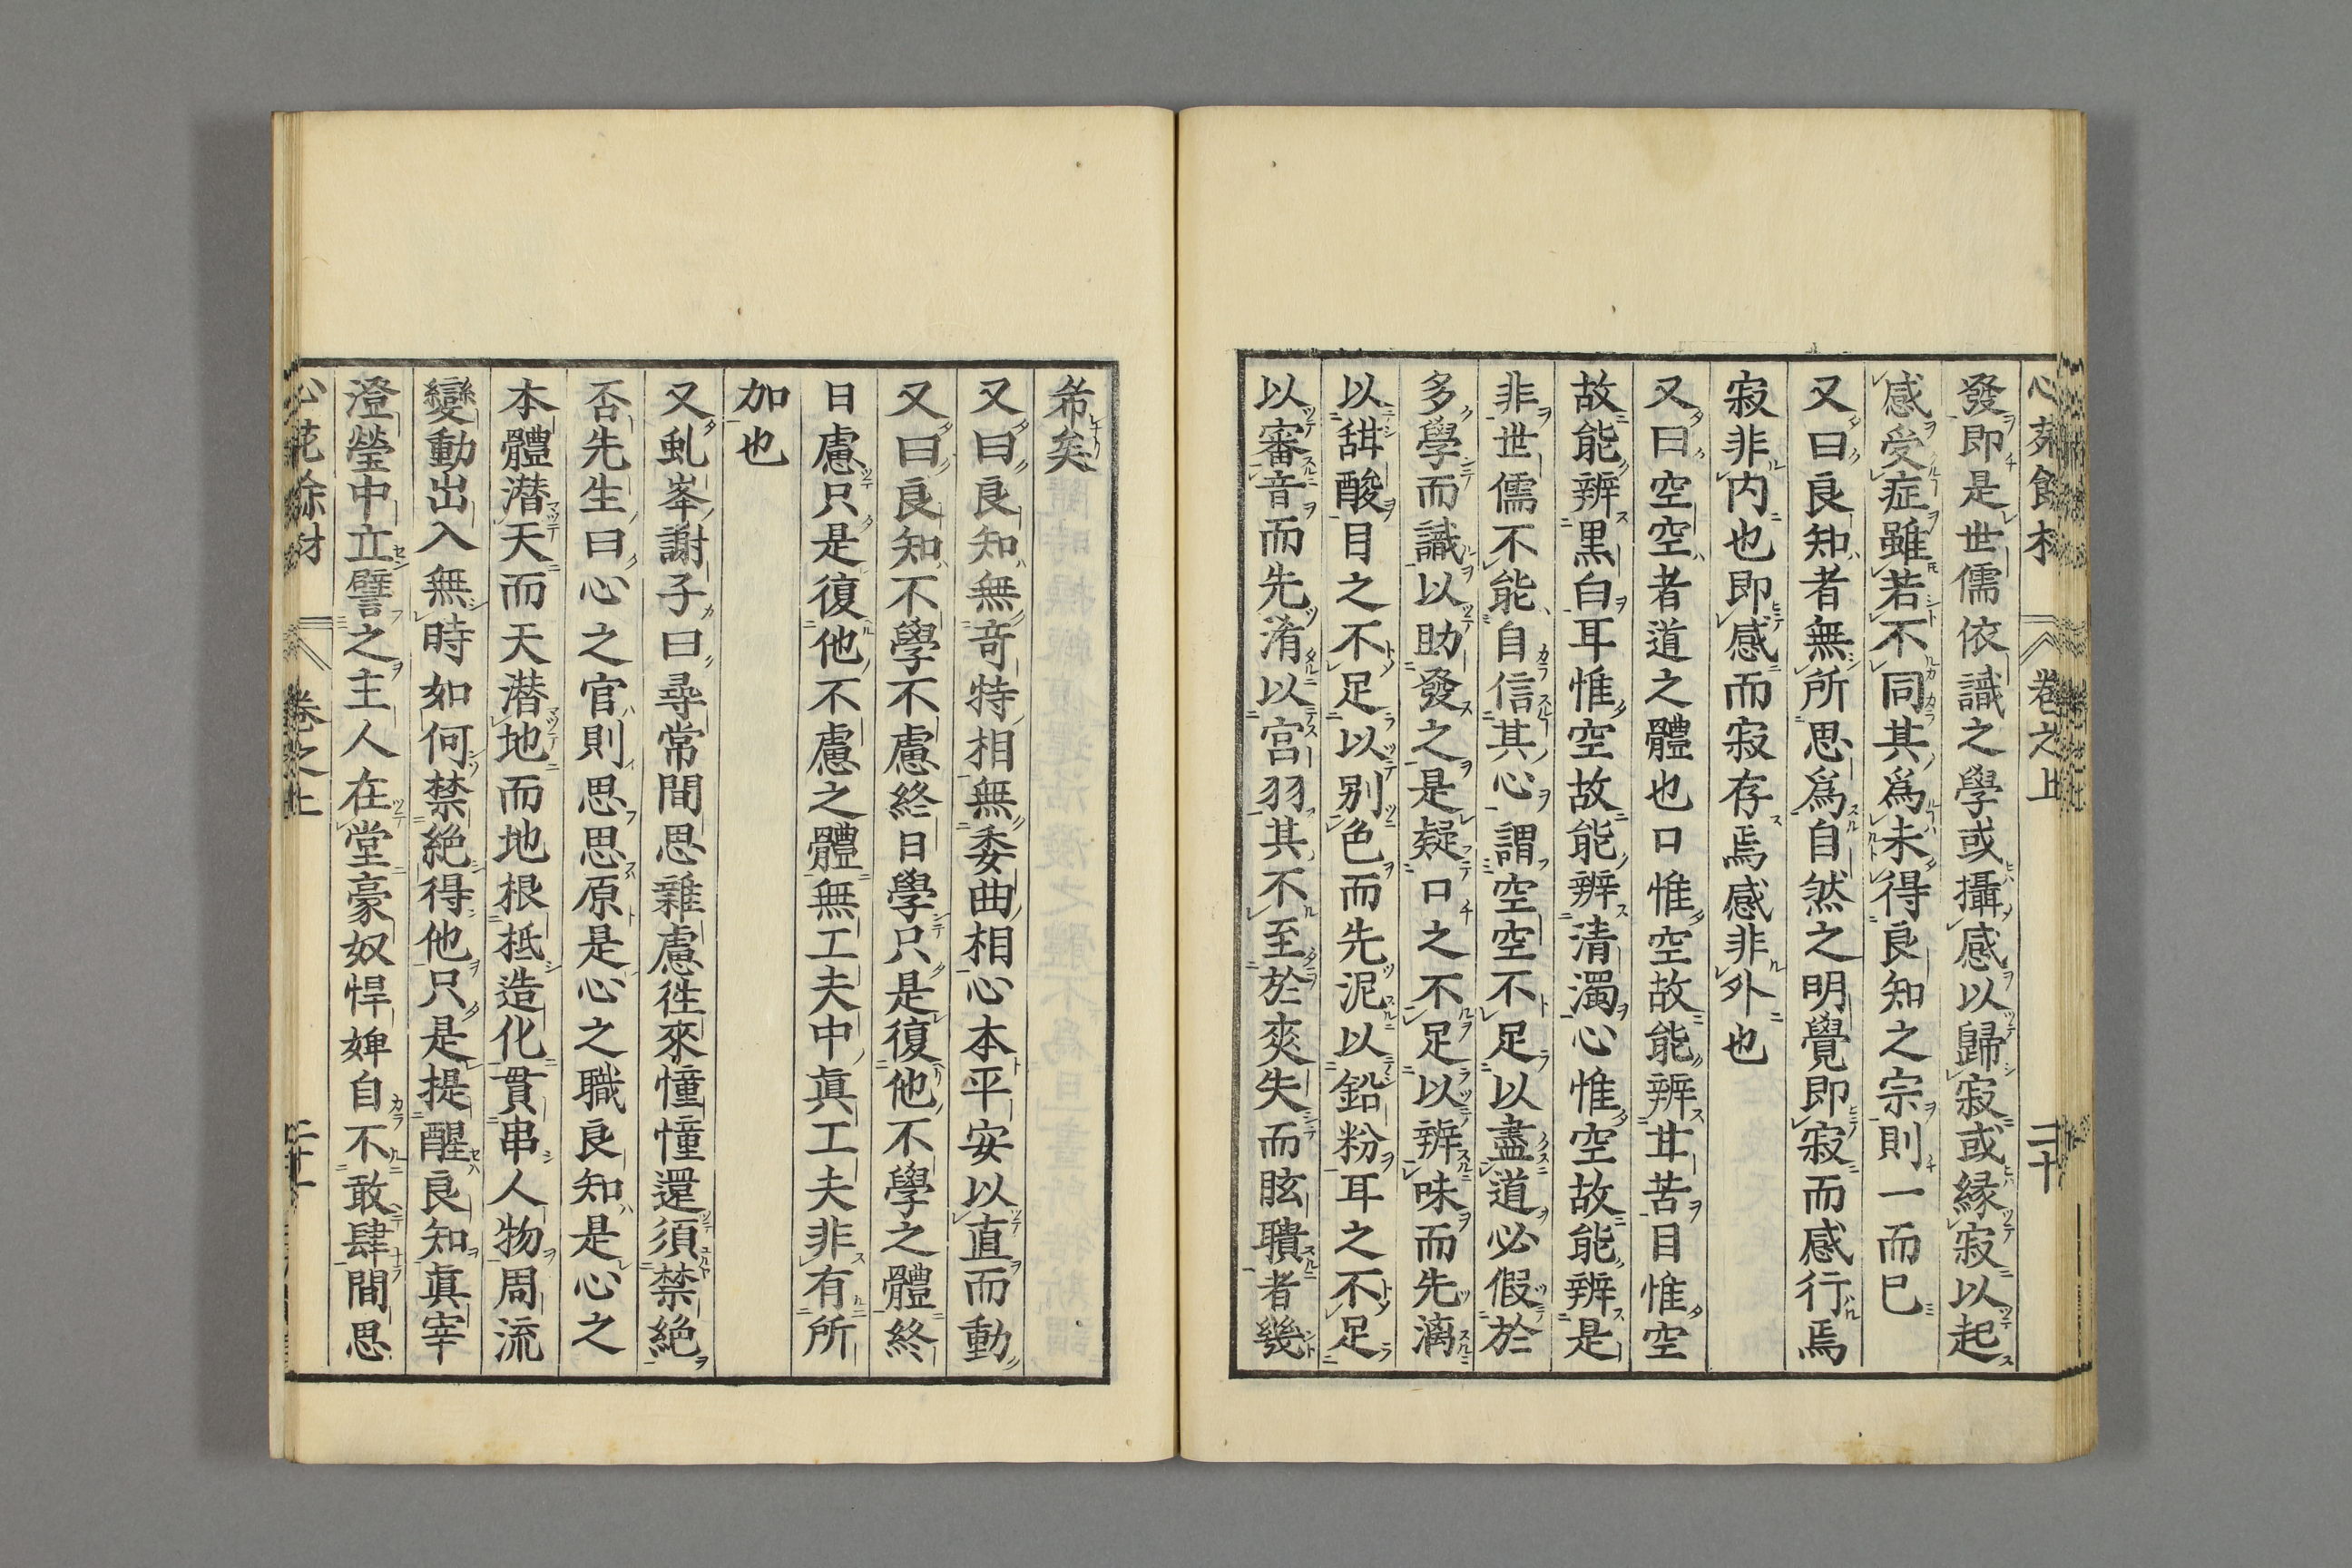 發即是世儒依識之學或攝感以歸寂或縁寂以起
感受症雖若不同其爲未得良知之宗則一而已
又曰良知者無所思爲自然之明覺即寂而感行焉
寂非内也即感而寂存焉感非外也
又曰空空者道之體也口惟空故能辨甘苦目惟空
故能辨黒白耳惟空故能辨清濁心惟空故能辨是
非世儒不能自信其心謂空空不足以盡道必假於
多學而識以助發之是疑口之不足以辨味而先漓
以甜酸目之不足以别色而先泥以鉛粉耳之不足
以審音而先淆以宮羽其不至於爽失而眩聵者幾
希矣
又曰良知無奇特相無委曲相心本平安以直而動
又曰良知不學不慮終日學只是復他不學之體終
日慮只是復他不慮之體無工夫中眞工夫非有所
加也
又虬峯謝子曰尋常間思雜慮徃來憧憧還須禁絶
否先生曰心之官則思思原是心之職良知是心之
本體潜天而天潜地而地根抵造化貫串人物周流
變動出入無時如何禁絶得他只是提醒良知眞宰
澄瑩中立譬之主人在堂豪奴悍婢自不敢肆間思
卷之上